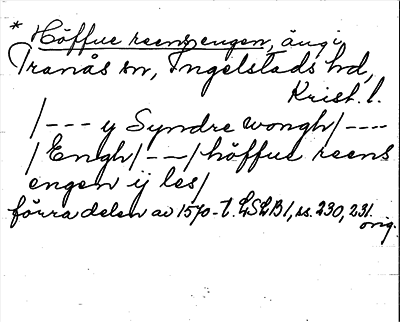 * Höffue reens engen, äng i
Tranås sn, Ingelstads hd,
Krist. l.
/--- y Syndre wongh/----
/Engh/--/höffue reens
engen ij les/
förra delen av 1570-t. LSLB 1, ss. 230, 231.
orig.